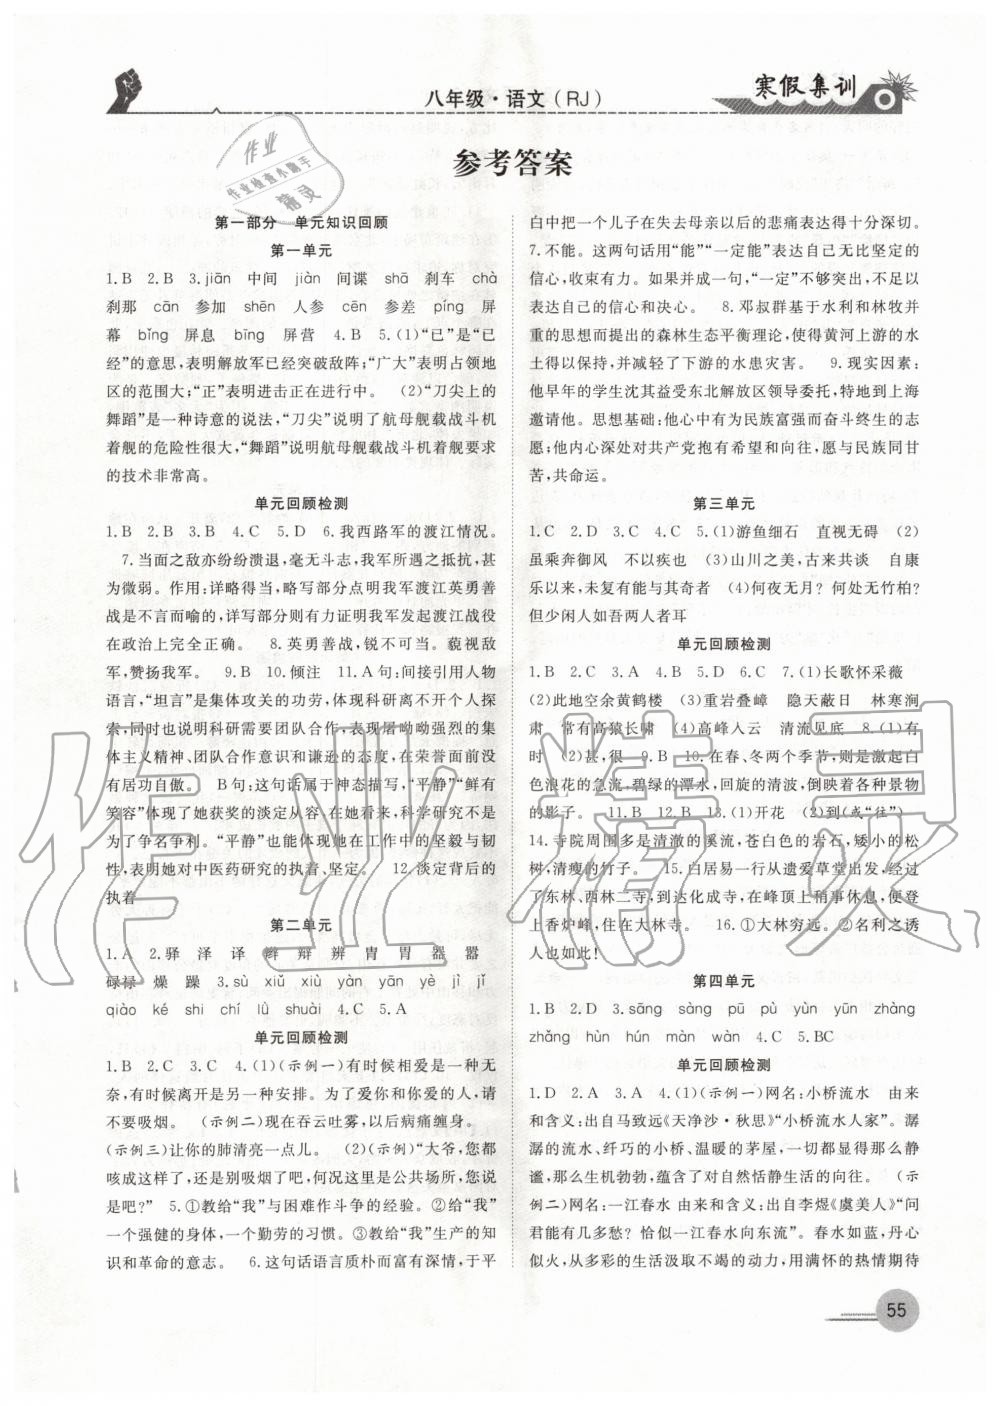 八年级·语文(RJ)
寒假集训
参考答案
第一部分 单元知识回顾
第一单元
1.B 2.B 3.jiān 中间 jiàn 间谍 shā 刹车 chà
刹那 cān 参加 shēn 人参 cēn 参差 píng 屏
幕 bǐng 屏息 bīng 屏营 4.B 5.(1)“已”是“已
经”的意思,表明解放军已经突破敌阵;“广大”表明占领地
区的范围大;“正”表明进击正在进行中。 (2)“刀尖上的
舞蹈”是一种诗意的说法,“刀尖”说明了航母舰载战斗机
着舰的危险性很大,“舞蹈”说明航母舰载战斗机着舰要求
的技术非常高。
单元回顾检测
1.B 2.B 3.B 4.C 5.D 6.我西路军的渡江情况。
7.当面之敌亦纷纷溃退,毫无斗志,我军所遇之抵抗,甚
为微弱。作用:详略得当,略写部分点明我军渡江英勇善
战是不言而喻的,详写部分则有力证明我军发起渡江战役
在政治上完全正确。 8.英勇善战,锐不可当。藐视敌
军,赞扬我军。 9.B 10.倾注 11.A句:间接引用人物
语言,“坦言”是集体攻关的功劳,体现科研离不开个人探
索,同时也说明科研需要团队合作,表现屠呦呦强烈的集
体主义精神、团队合作意识和谦逊的态度,在荣誉面前没
有居功自傲。 B句:这句话属于神态描写,“平静”“鲜有
笑容”体现了她获奖的淡定从容,在她看来,科学研究不是
为了争名争利。“平静”也能体现她在工作中的坚毅与韧
性,表明她对中医药研究的执着、坚定。 12.淡定背后的
执着
第二单元
1.A 2.驿 泽 译 辫 辩 辨 胄 胃 器 嚣
碌禄 燥 躁 3.sù xiǔ xiù yàn yān yè jì jǐ
qiào ké shi chí lǜ shuài 4.C 5.A
单元回顾检测
1.B 2.C 3.C 4.(1)(示例一)有时候相爱是一种无
奈,有时候离开是另一种安排。为了爱你和你爱的人,请
不要吸烟。 (示例二)现在吞云吐雾,以后病痛缠身。
(示例三)让你的肺清亮一点儿。 (2)(示例)“大爷,您都
咳成这样了,还是别吸烟了吧,何况这里是公共场所,您说
是吧?” 5.①教给“我”与困难作斗争的经验。②给“我”
一个强健的身体,一个勤劳的习惯。③教给“我”生产的知
识和革命的意志。 6.这句话语言质朴而富有深情,于平
白中把一个儿子在失去母亲以后的悲痛表达得十分深切。
7.不能。这两句话用“能”“一定能”表达自己无比坚定的
信心,收束有力。如果并成一句,“一定”不够突出,不足以
表达自己的信心和决心。 8.邓叔群基于水利和林牧并
重的思想而提出的森林生态平衡理论,使得黄河上游的水
土得以保持,并减轻了下游的水患灾害。 9.现实因素:
他早年的学生沈其益受东北解放区领导委托,特地到上海
邀请他。思想基础:他心中有为民族富强而奋斗终生的志
愿;他内心深处对共产党抱有希望和向往,愿与民族同甘
苦,共命运。
第三单元
1.C 2.D 3.C 4.C 5.(1)游鱼细石 直视无碍 (2)
虽乘奔御风 不以疾也 (3)山川之美,古来共谈 自康
乐以来,未复有能与其奇者 (4)何夜无月?何处无竹柏?
但少闲人如吾两人者耳
单元回顾检测
1.B 2.C 3.A 4.B 5.D 6.C 7.(1)长歌怀采薇
(2)此地空余黄鹤楼 (3)重岩叠嶂 隐天蔽日 林寒涧
肃 常有高猿长啸 (4)高峰入云 清流见底 8.(1)有
时 (2)甚,很 9.B 10.在春、冬两个季节,则是激起白
色浪花的急流,碧绿的潭水,回旋的清波,倒映着各种景物
的影子。 11.B 12.B 13.(1)开花 (2)到(或“往”)
14.寺院周围多是清澈的溪流,苍白色的岩石,矮小的松
树,清瘦的竹子。 15.白居易一行从遗爱草堂出发,经过
了东林、西林二寺,到达化成寺,在峰顶上稍事休息,便登
上香炉峰,住在大林寺。 16.①大林穷远。②名利之诱
人也如此!
第四单元
1.B 2.D 3.sāng sàng pū pù yùn yūn zhàng
zhǎng hùn hún màn wàn 4.C 5.BC
单元回顾检测
1.D 2.A 3.A 4.(1)(示例一)网名:小桥流水 由来
和含义:出自马致远《天净沙·秋思》“小桥流水人家”。潺
潺的流水、纤巧的小桥、温暖的茅屋,一切都显得那么静
谧,那么生机勃勃,蕴含了对自然恬静生活的向往。 (示
例二)网名:一江春水 由来和含义:出自李煜《虞美人》“问
君能有几多愁?恰似一江春水向东流”。春水如蓝,丹心
似火,从多彩的生活汲取不竭的动力,用满怀的热情期待
55
作业
作业检查小助手
精灵
作业精灵